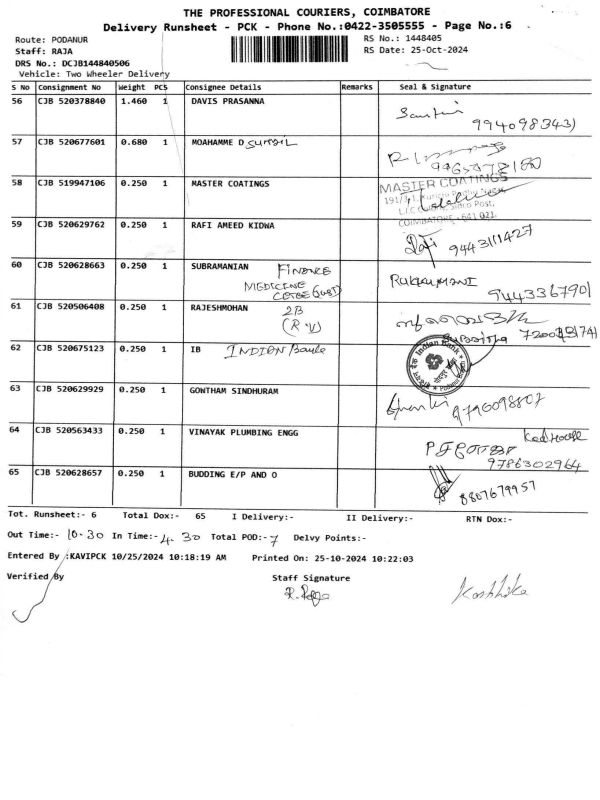 THE PROFESSIONAL COURIERS, COIMBATORE
Delivery Runsheet - PCK - Phone No.:0422-3505555 - Page No.:6
Route: PODANUR RS No.: 1448405
Staff: RAJA RS Date: 25-Oct-2024
DRS No.: DCJB144840506
Vehicle: Two Wheeler Delivery
S No Consignment No Weight PCS Consignee Details Remarks Seal & Signature
56 CJB 520378840 1.460 1 DAVIS PRASANNA
57 CJB 520677601 0.680 1 MOAHAMME D
58 CJB 519947106 0.250 1 MASTER COATINGS MASTER COATINGS
COIMBATORE - 641 021
59 CJB 520629762 0.250 1 RAFI AMEED KIDWA Rafi 9443111427
60 CJB 520628663 0.250 1 SUBRAMANIAN FINANCE
MEDICINE
9443367901
61 CJB 520506408 0.250 1 RAJESHMOHAN 2B
(R.V)
62 CJB 520675123 0.250 1 IB INDIAN Bank Indian Bank
63 CJB 520629929 0.250 1 GONTHAM SINDHURAM 9790098807
64 CJB 520563433 0.250 1 VINAYAK PLUMBING ENGG
9786302964
65 CJB 520628657 0.250 1 BUDDING E/P AND O 8807679957
Tot. Runsheet:- 6 Total Dox:- 65 I Delivery:- II Delivery:- RTN Dox:-
Out Time:- 10-30 In Time:- 4.30 Total POD:- 7 Delvy Points:-
Entered By :KAVIPCK 10/25/2024 10:18:19 AM Printed On: 25-10-2024 10:22:03
Verified By Staff Signature
R. Raja